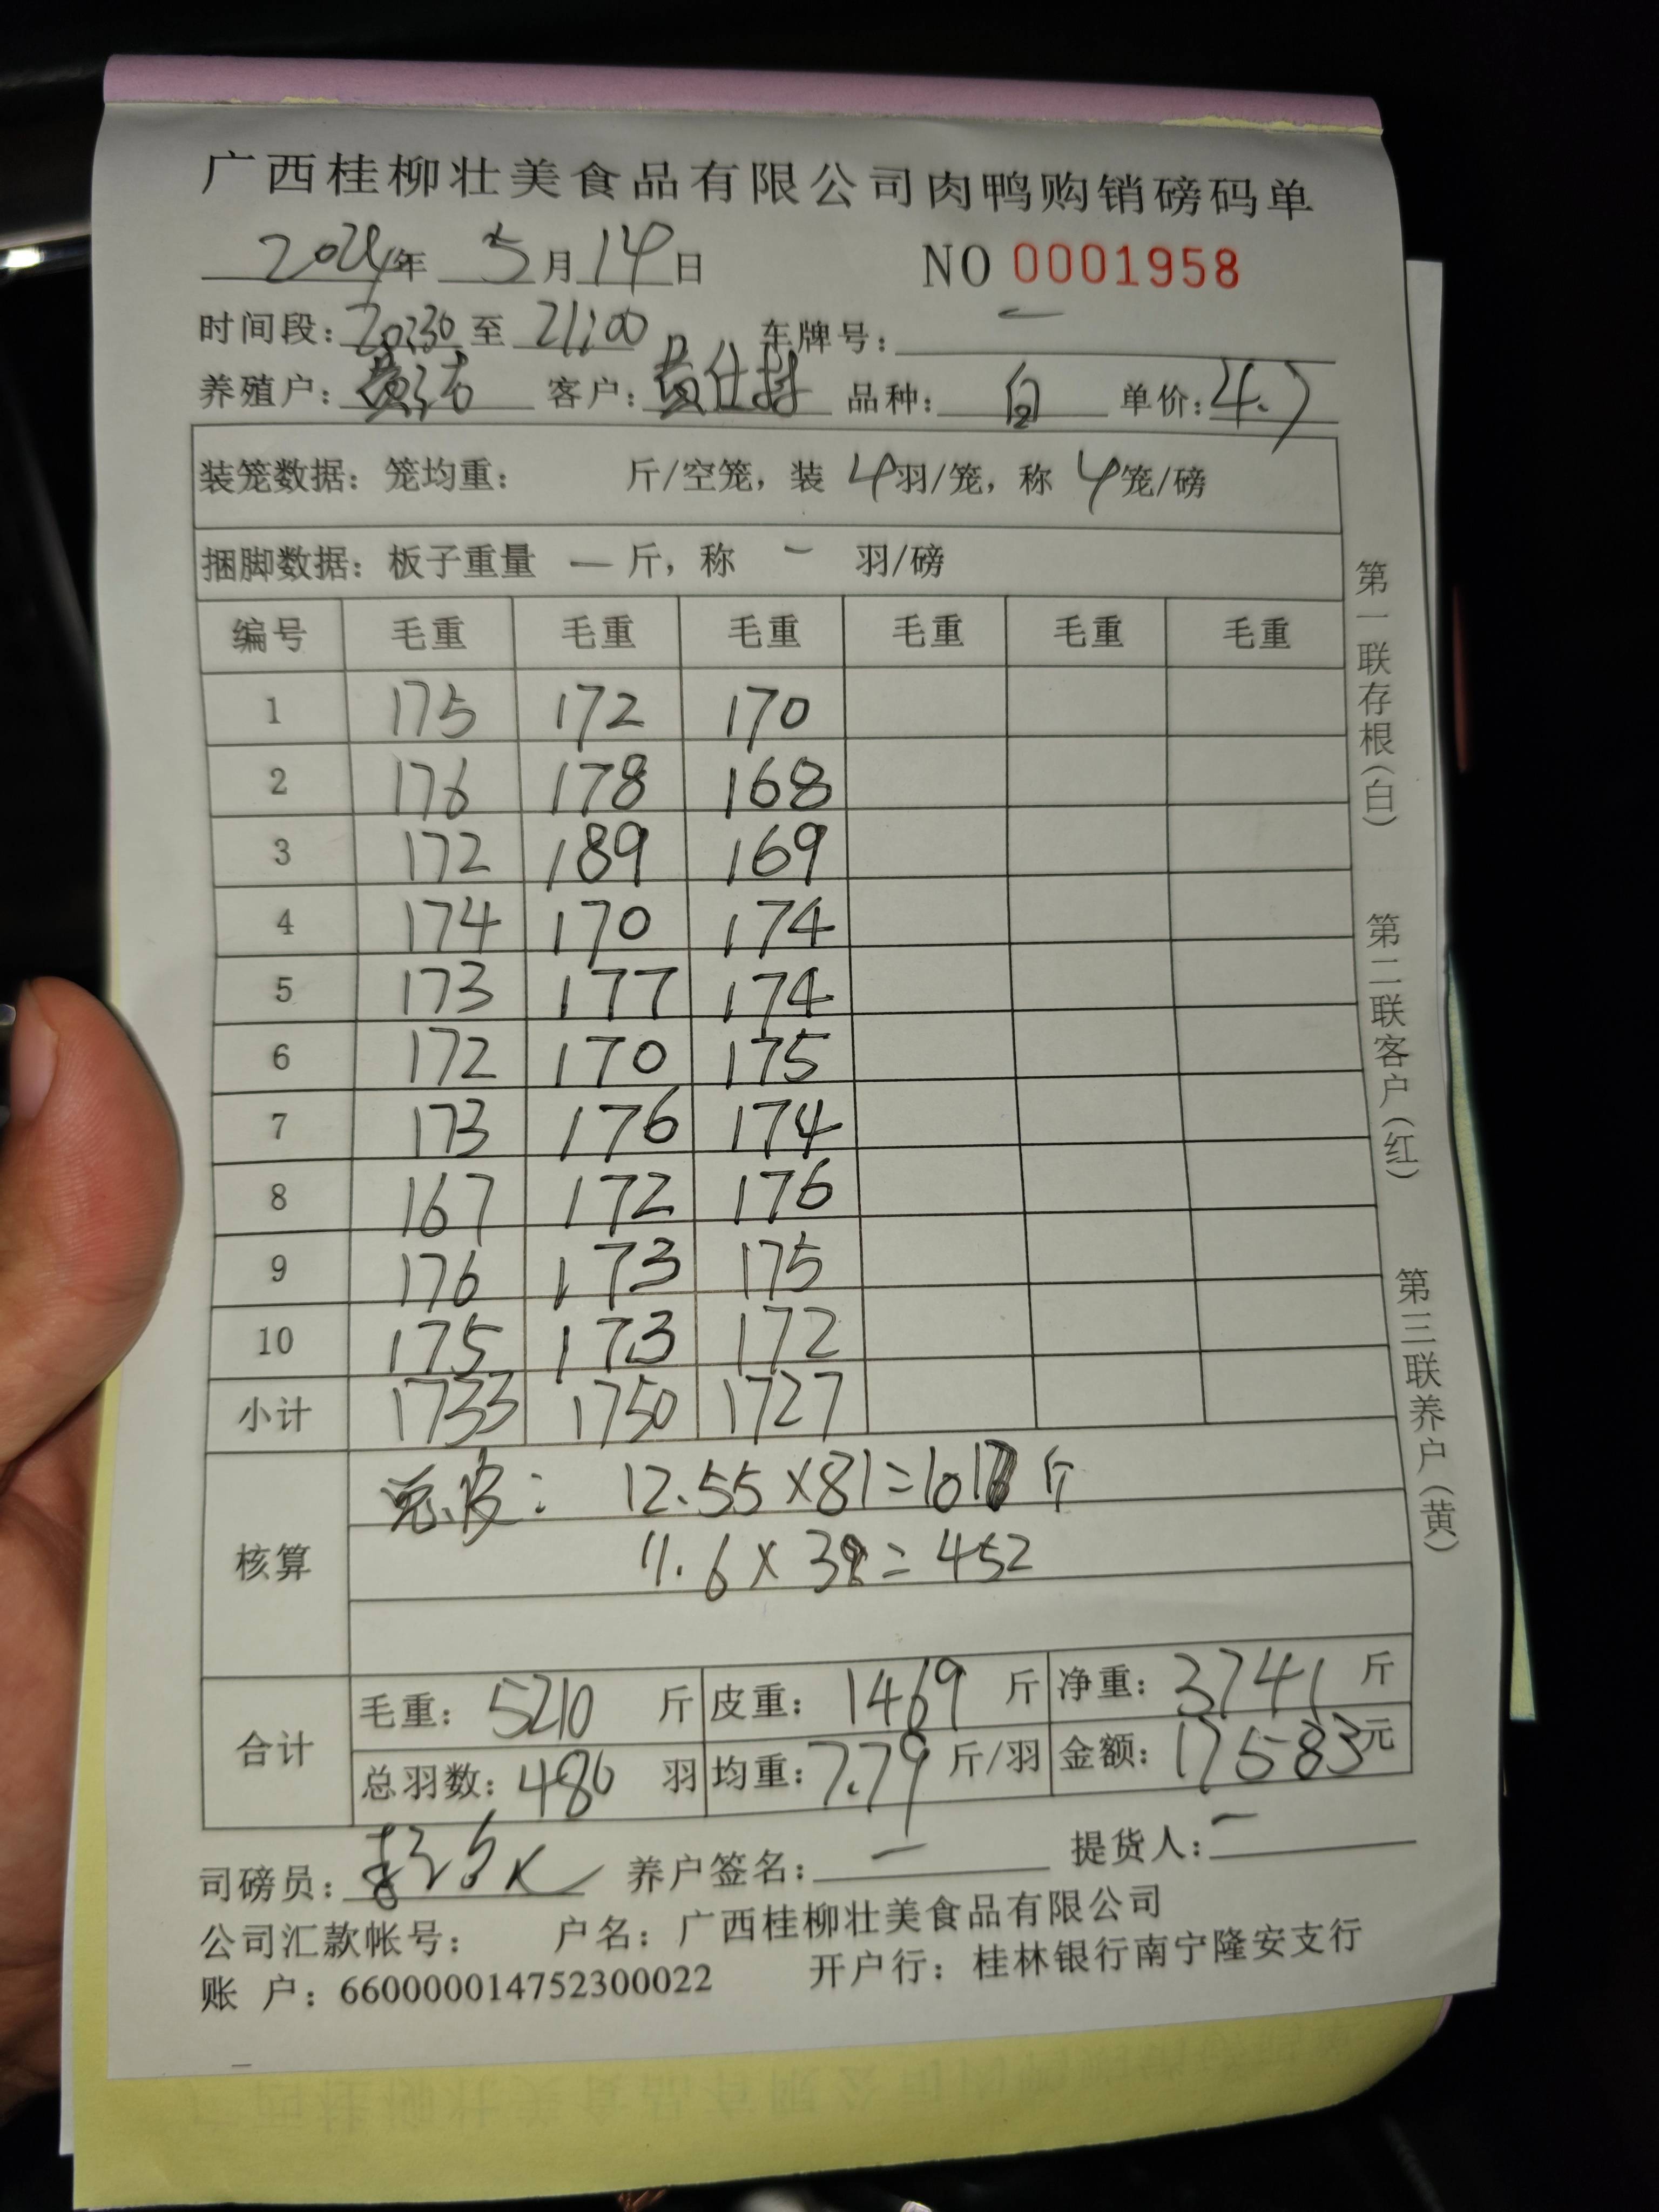 广西桂柳壮美食品有限公司肉鸭购销磅码单
2024年 5月14日 NO 0001958
时间段：20:30 至 21:00 车牌号：—
养殖户： 客户：黄仕 品种：白 单价：4.7
装笼数据：笼均重： 斤/空笼，装 4羽/笼，称 4笼/磅
捆脚数据：板子重量 — 斤，称 — 羽/磅
编号 毛重 毛重 毛重 毛重 毛重 毛重
1 175 172 170
2 176 178 168
3 172 189 169
4 174 170 174
5 173 177 174
6 172 170 175
7 173 176 174
8 167 172 176
9 176 173 175
10 175 173 172
小计 1733 1750 1727
核算 总皮： 12.55×81=1017 斤
11.6×39=452
合计 毛重：5210 斤 皮重：1469 斤 净重：3741 斤
总羽数：480 羽 均重：7.79 斤/羽 金额：17583元
司磅员： 养户签名：— 提货人：—
公司汇款帐号： 户名：广西桂柳壮美食品有限公司
账 户：660000014752300022 开户行：桂林银行南宁隆安支行
第一联存根（白） 第二联客户（红） 第三联养户（黄）